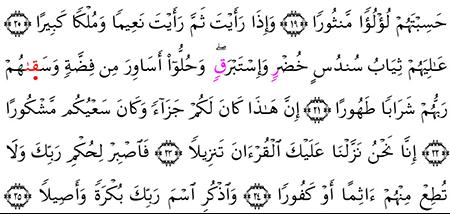 حَسِبْتَهُمْ لُؤْلُؤًا مَّنثُورًا ﴿١٩﴾ وَإِذَا رَأَيْتَ ثَمَّ رَأَيْتَ نَعِيمًا وَمُلْكًا كَبِيرًا ﴿٢٠﴾
عَٰلِيَهُمْ ثِيَابُ سُندُسٍ خُضْرٍ وَإِسْتَبْرَقٍ ۖ وَحُلُّوٓا۟ أَسَاوِرَ مِن فِضَّةٍ وَسَقَىٰهُمْ
رَبُّهُمْ شَرَابًا طَهُورًا ﴿٢١﴾ إِنَّ هَٰذَا كَانَ لَكُمْ جَزَآءً وَكَانَ سَعْيُكُم مَّشْكُورًا
﴿٢٢﴾ إِنَّا نَحْنُ نَزَّلْنَا عَلَيْكَ ٱلْقُرْءَانَ تَنزِيلًا ﴿٢٣﴾ فَٱصْبِرْ لِحُكْمِ رَبِّكَ وَلَا
تُطِعْ مِنْهُمْ ءَاثِمًا أَوْ كَفُورًا ﴿٢٤﴾ وَٱذْكُرِ ٱسْمَ رَبِّكَ بُكْرَةً وَأَصِيلًا ﴿٢٥﴾